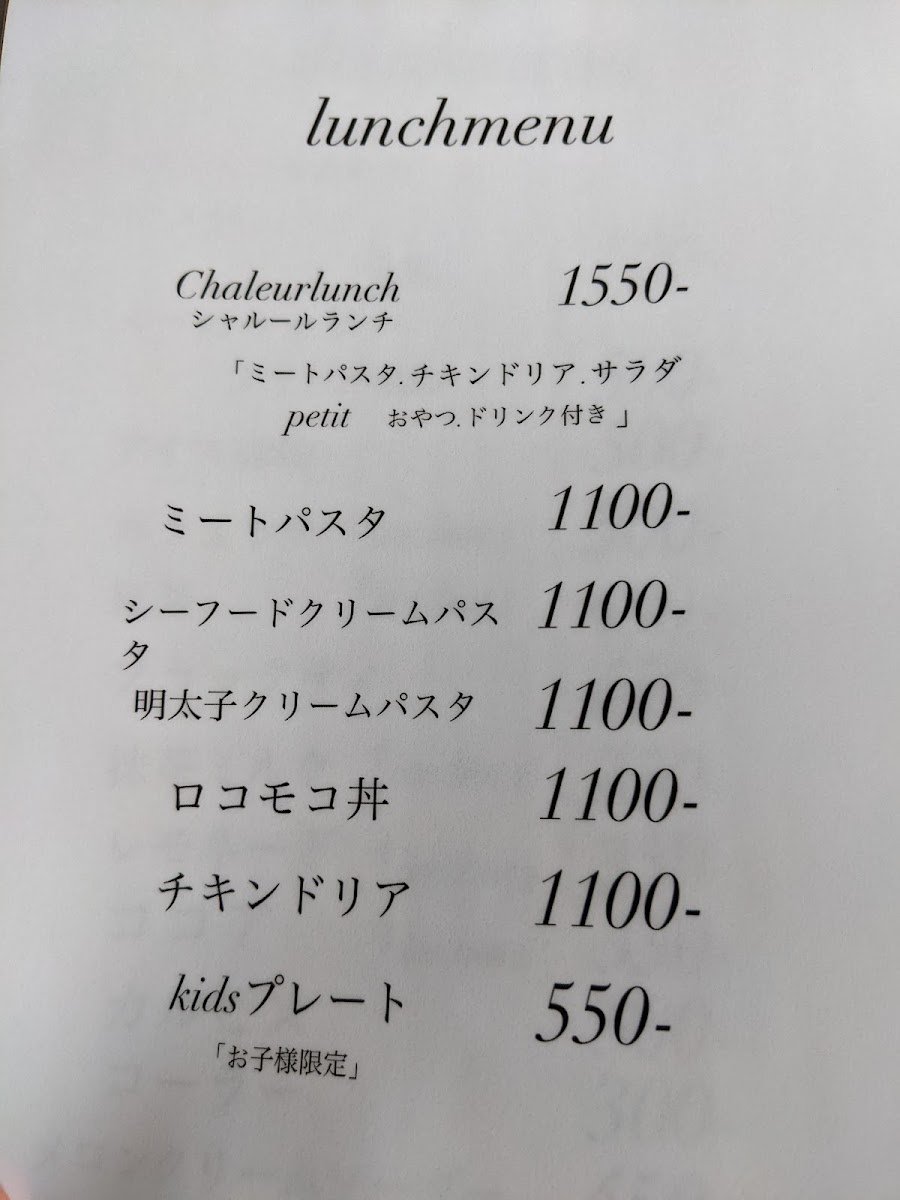 lunchmenu
Chaleurlunch 1550-
シャルールランチ
「ミートパスタ.チキンドリア.サラダ
petit おやつ.ドリンク付き」
ミートパスタ 1100-
シーフードクリームパス 1100-
タ
明太子クリームパスタ 1100-
ロコモコ丼 1100-
チキンドリア 1100-
kidsプレート 550-
「お子様限定」